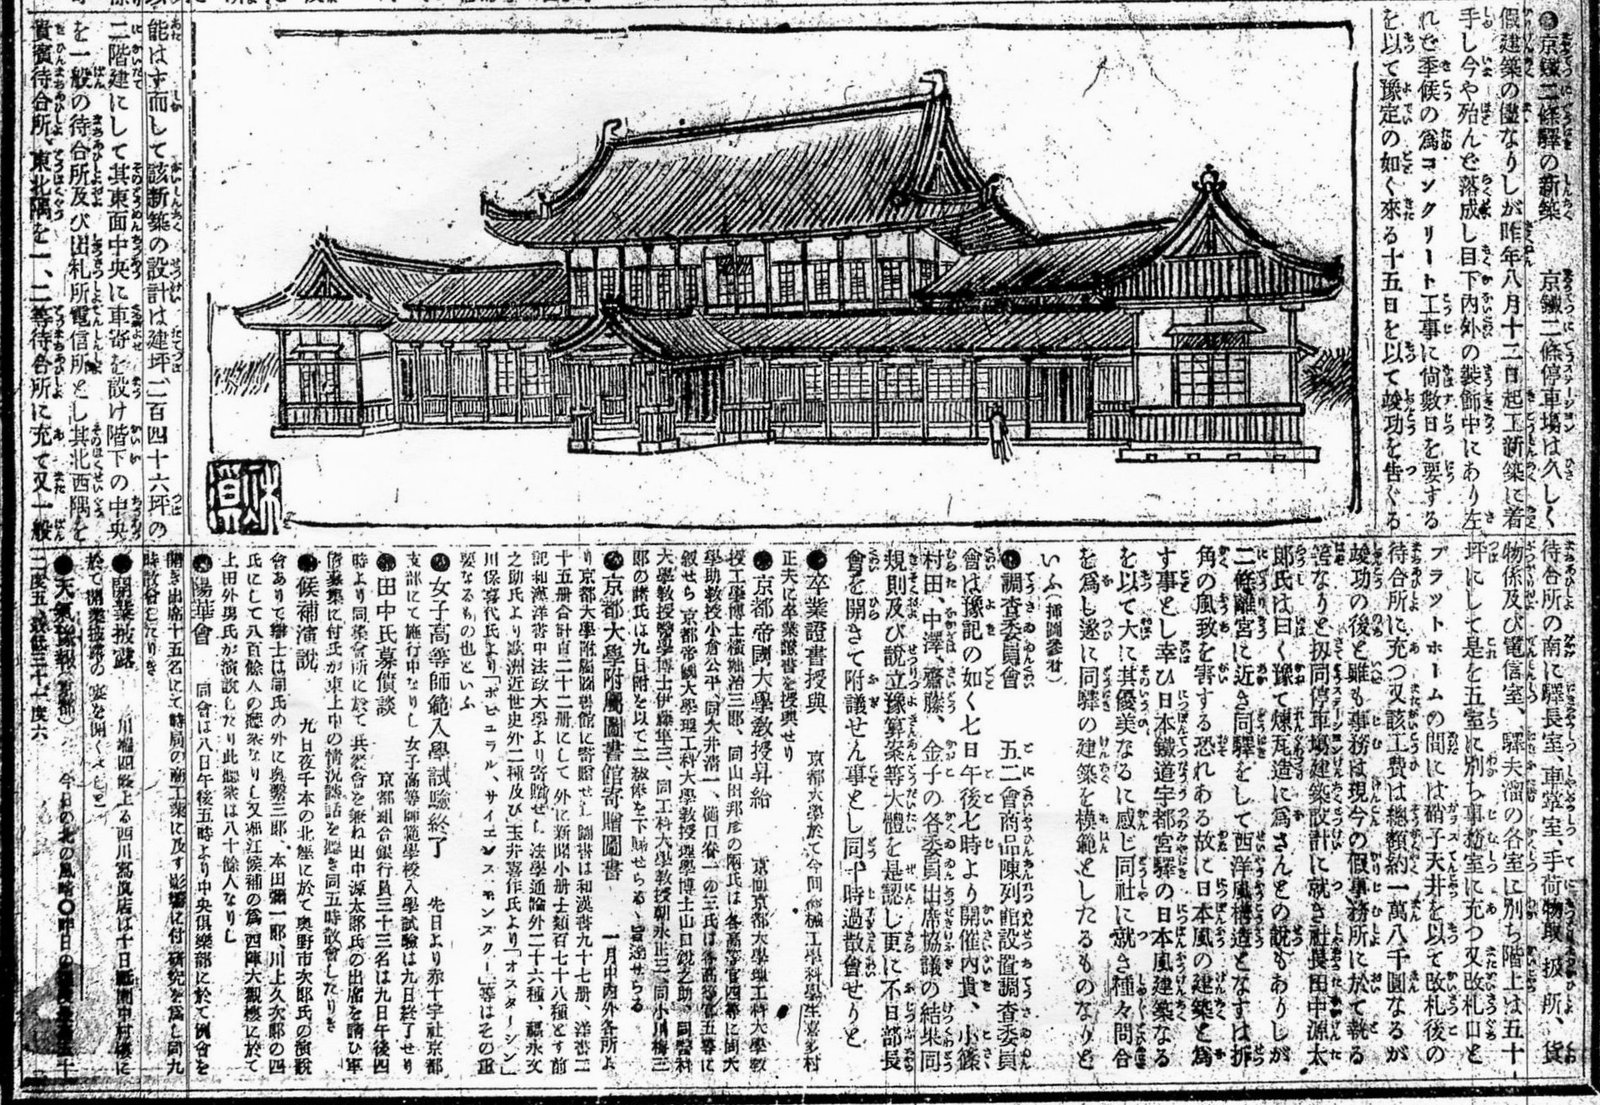 ●京鐵二條驛の新築　京鐵二條停車場は久しく
假建築の儘なりしが昨年八月十二日起工新築に着
手し今や殆んど落成し目下內外の裝飾中にあり左
れど季候の爲コンクリート工事に尙數日を要する
を以て豫定の如く來る十五日を以て竣功を吿ぐる
能はず而して該新築の設計は建坪二百四十六坪の
二階建にして其東面中央に車寄を設け階下の中央
を一般の待合所及び出札所電信所とし其北西隅を
貴賓待合所、東北隅を一、二等待合所に充て又一般
待合所の南に驛長室、車掌室、手荷物取扱所、貨
物係及び電信室、驛夫溜の各室に別ち階上は五十
坪にして是を五室に別ち事務室に充つ又改札口と
プラットホームの間には硝子天井を以て改札後の
待合所に充つ又該工費は總額約一萬八千圓なるが
竣功の後と雖も事務は現今の假事務所に於て執る
筈なりと扨同停車場建築設計に就き社長田中源太
郎氏は曰く豫て煉瓦造に爲さんとの說もありしが
二條離宮に近き同驛をして西洋風構造となすは折
角の風致を害する恐れある故に日本風の建築と爲
す事とし幸ひ日本鐵道宇都宮驛の日本風建築なる
を以て大に其優美なるに感じ同社に就き種々問合
を爲し遂に同驛の建築を模範としたるものなりと
いふ（挿圖參看）
●調査委員會　五二會商品陳列館設置調査委員
會は豫記の如く七日午後七時より開催內貴、小篠
村田、中澤、齋藤、金子の各委員出席協議の結果同
規則及び說立豫算案等大體を是認し更に不日部長
會を開きて附議せん事とし同十時過散會せりと
●卒業證書授與　京都大學於て今回機械工學科學生喜多村
正夫に卒業證書を授與せり
●京都帝國大學敎授昇給　京都帝國大學理工科大學敎
授工學博士橫堀治三郎、同山田邦彥の兩氏は各高等官四等に同大
學助敎授小倉公平、同大井淸一、樋口
敍せら 京都帝國大學理工科大學敎授理學博士山口銳之助、同醫科
大學敎授醫學博士伊藤隼三、同工科大學敎授朝永正三、同小川梅三
郞の諸氏は九日附を以て二級俸を下賜せらる
●京都大學附屬圖書館寄贈圖書　一月中內外各所よ
り京都大學附屬圖書館に寄贈せし圖書は和漢書九十七册、洋書二
十五册合計百二十二册にして外に新聞小册子類百七十八種とす前
記和漢洋書中法政大學より寄贈せし法學通論外二十六種、福永文
之助氏より歐洲近世史外二種及び玉井喜作氏より「オスターシン」
川保喜代氏より「ポピュラル、サイエンス モンスクー」等はその重
要なるもの也といふ
●女子高等師範入學試驗終了　先日より赤十字社京都
支部にて施行中なりし女子高等師範學校入學試驗は九日終了せり
●田中氏募債談　京都組合銀行員三十三名は九日午後四
時より同集會所に於て兵
債募集に付氏が東上中の情況談話を聽き同五時散會したりき
●候補演說　九日夜千本の北座に於て奧野市次郞氏の演說
會ありて辯士は同氏の外に奧繁三郞、本田彌一郞、川上久次郞の四
氏にして八百餘人の聽衆なりし又堀江候補の爲西陣大觀樓に於て
上田外男氏が演說したり此聽衆は八十餘人なりし
●陽華會　同會は八日午後五時より中央俱樂部に於て例會を
開き出席十五名にて時局の商工業に及す影響に付研究を爲し同九
時散會したりき
●開業披露　川端四條上る西川寫眞店は十日祇園中村樓に
於て開業披露の宴を開く
●天氣豫報　今日の北の風晴〇昨日の
二度五、最低三十一度六